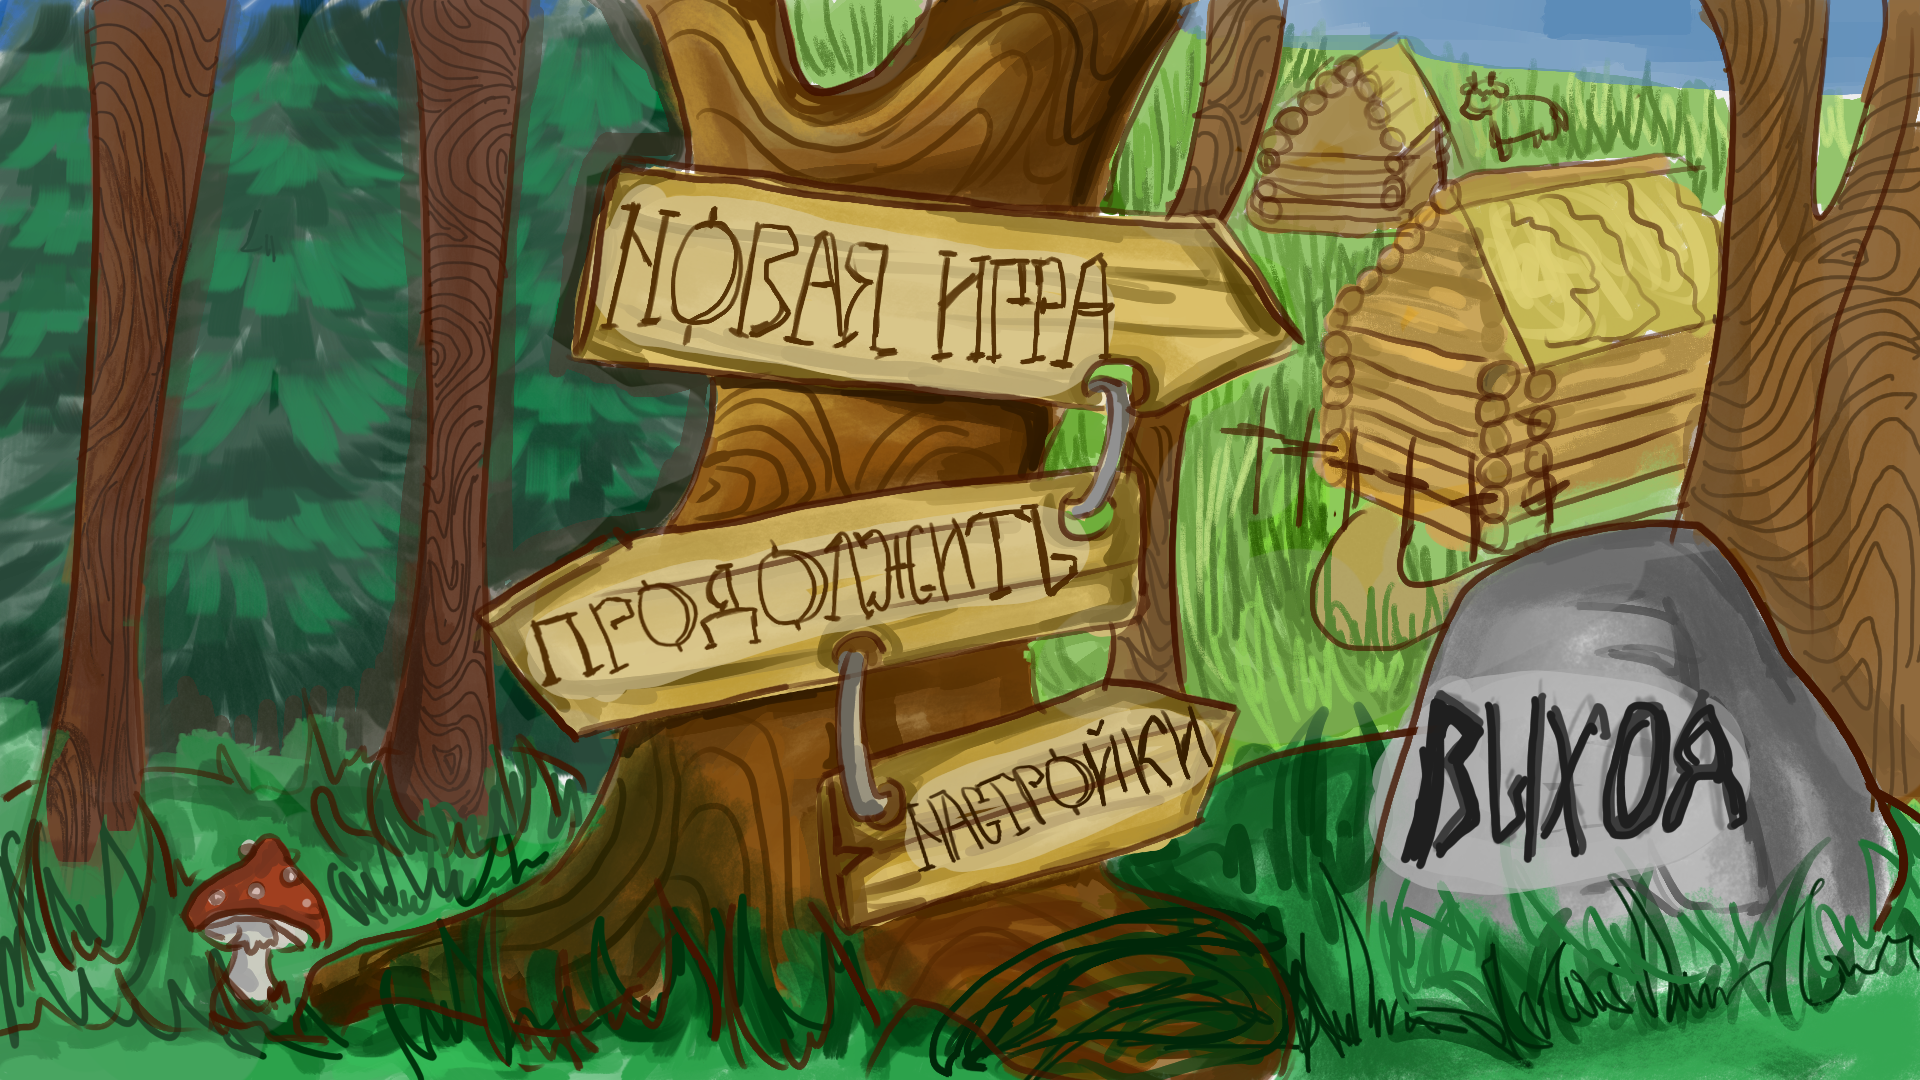 НОВАЯ ИГРА
ПРОДОЛЖИТЬ
НАСТРОЙКИ
ВЫХОД